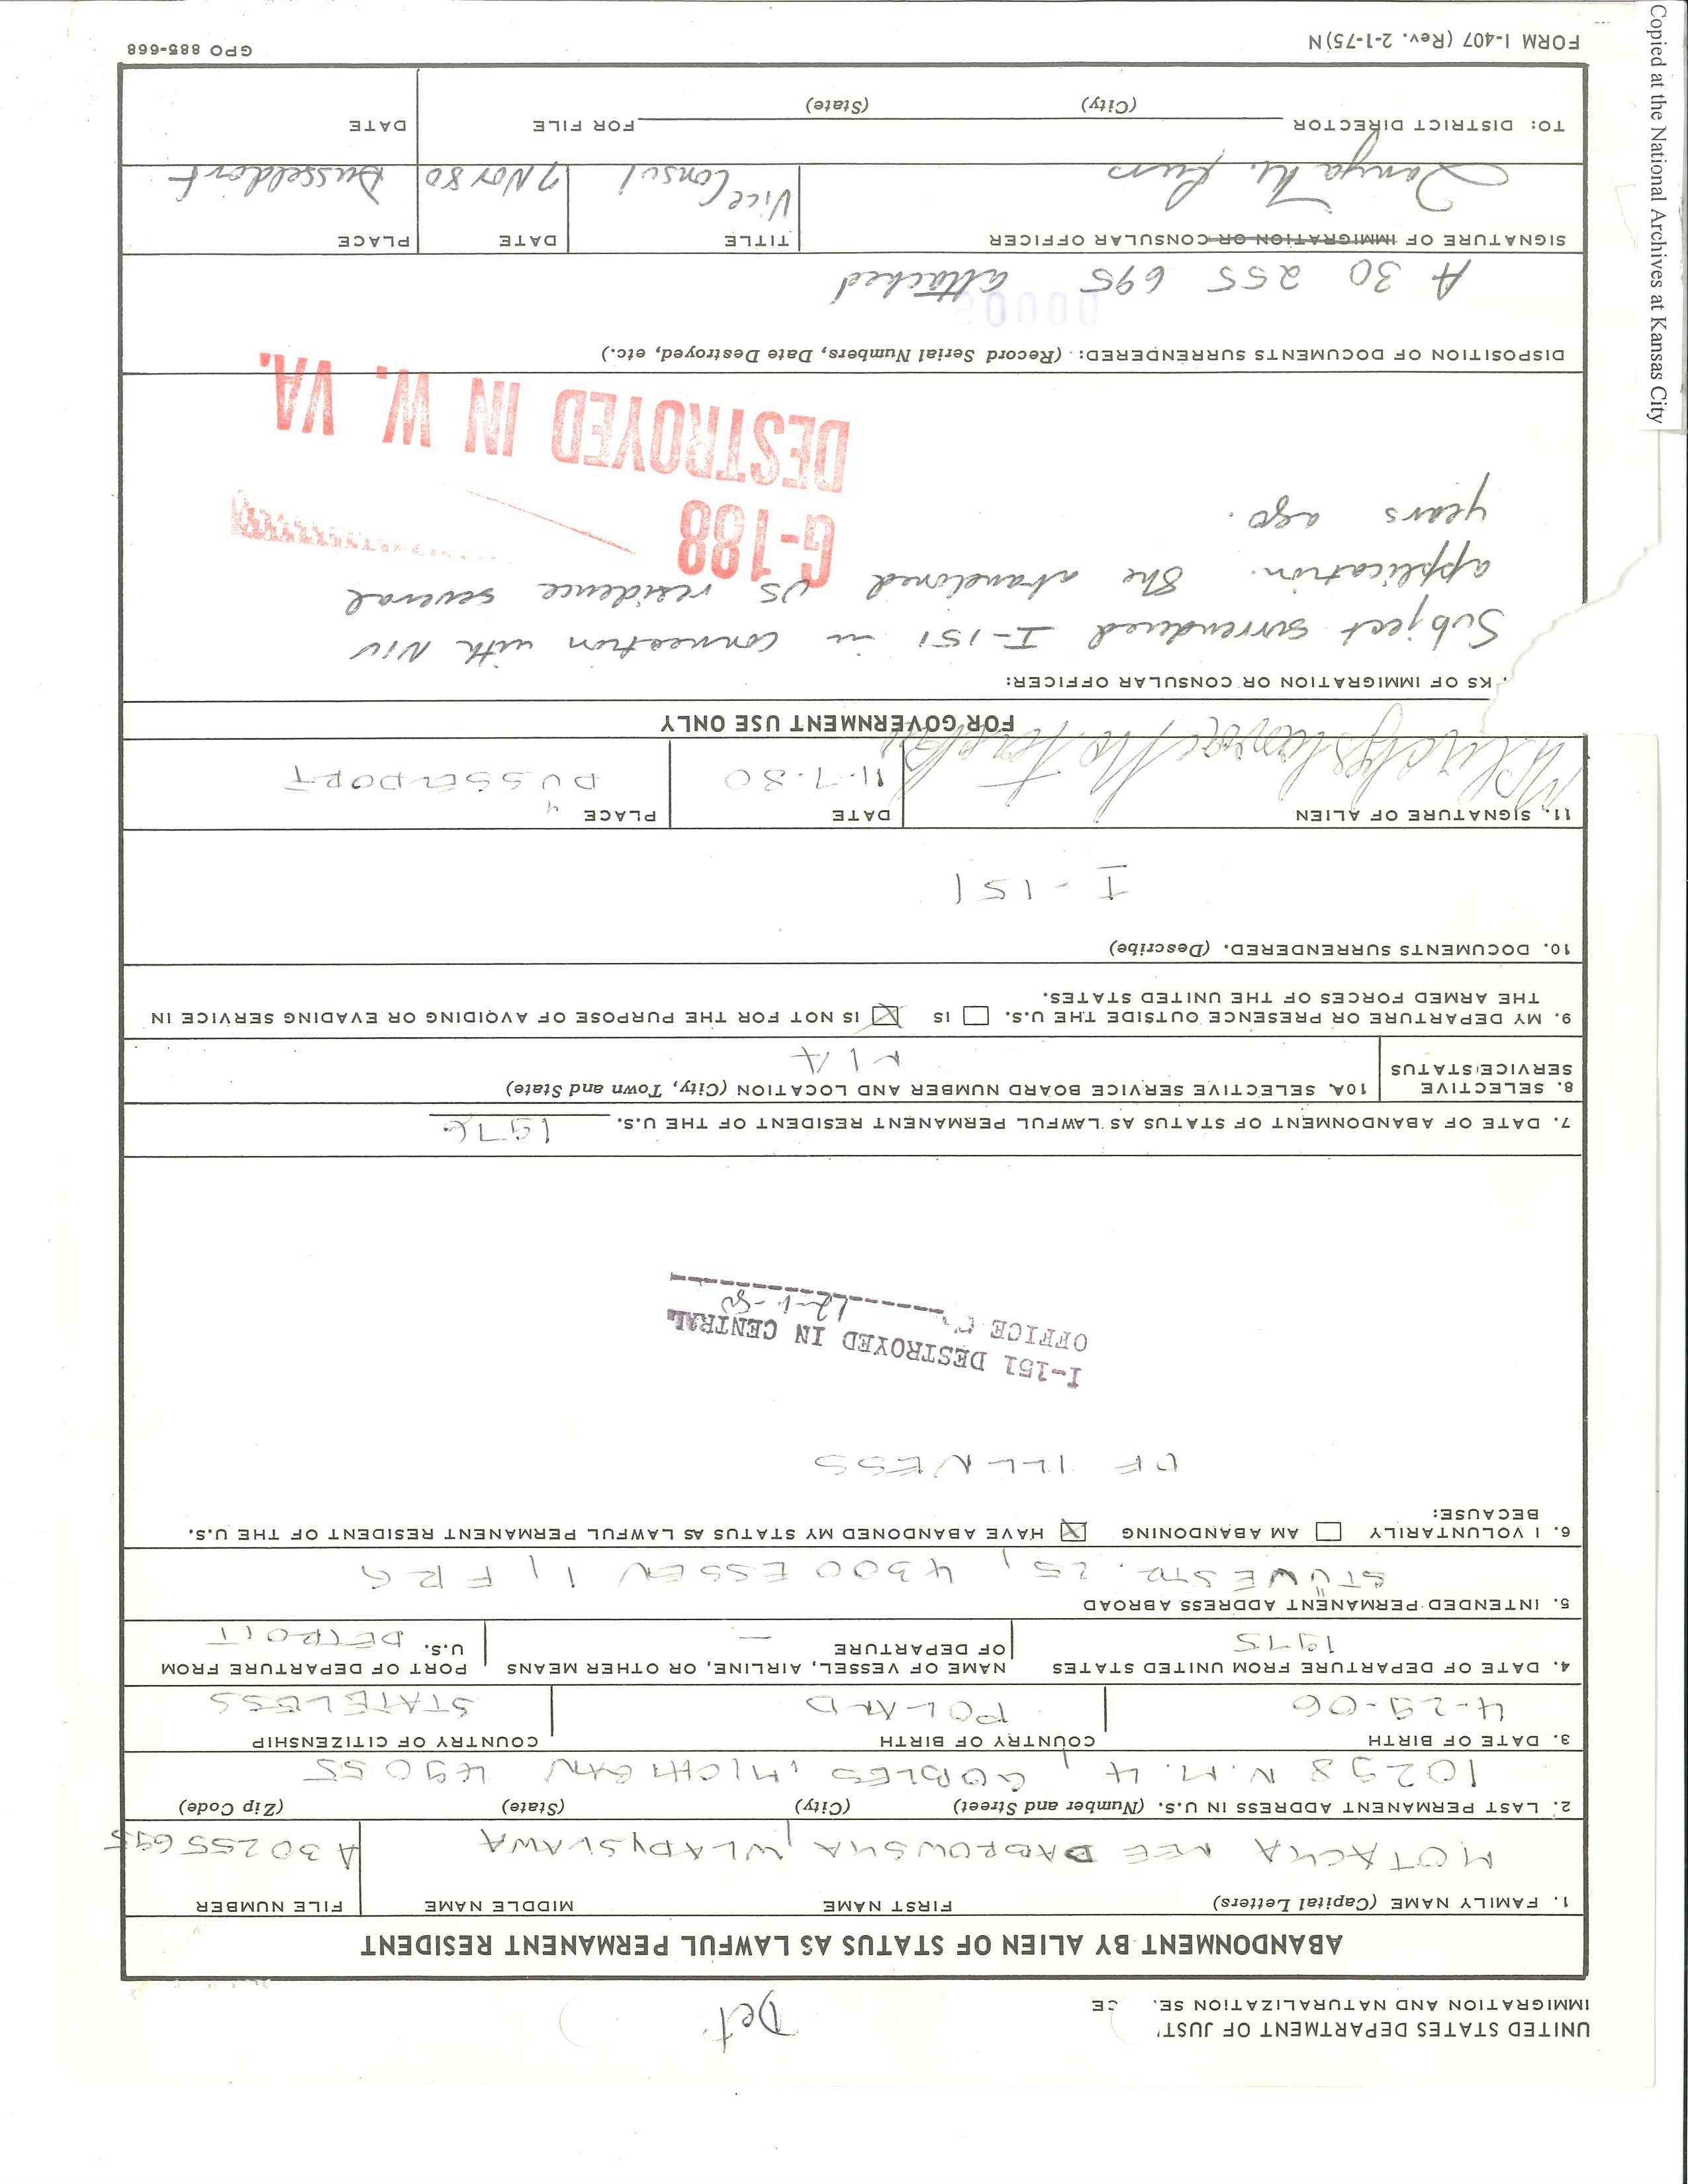 UNITED STATES DEPARTMENT OF JUST
IMMIGRATION AND NATURALIZATION SE. CE
Det
ABANDONMENT BY ALIEN OF STATUS AS LAWFUL PERMANENT RESIDENT
1. FAMILY NAME (Capital Letters) FIRST NAME MIDDLE NAME FILE NUMBER
MOTACKA NEE DABROWSKA, WLADYSLAWA A30255695
2. LAST PERMANENT ADDRESS IN U.S. (Number and Street) (City) (State) (Zip Code)
10298 N.M. 4, GOBLES, MICHIGAN 49055
3. DATE OF BIRTH COUNTRY OF BIRTH COUNTRY OF CITIZENSHIP
4-29-06 POLAND STATELESS
4. DATE OF DEPARTURE FROM UNITED STATES NAME OF VESSEL, AIRLINE, OR OTHER MEANS OF DEPARTURE PORT OF DEPARTURE FROM U.S.
1975 — DETROIT
5. INTENDED PERMANENT ADDRESS ABROAD
STÜWESTR. 25, 4300 ESSEN 1, FRG
6. I VOLUNTARILY ☐ AM ABANDONING ☒ HAVE ABANDONED MY STATUS AS LAWFUL PERMANENT RESIDENT OF THE U.S.
BECAUSE:
OF ILLNESS
I-151 DESTROYED IN CENTRAL
OFFICE
12-1-80
7. DATE OF ABANDONMENT OF STATUS AS LAWFUL PERMANENT RESIDENT OF THE U.S. 1976
8. SELECTIVE SERVICE STATUS 10A. SELECTIVE SERVICE BOARD NUMBER AND LOCATION (City, Town and State)
N/A
9. MY DEPARTURE OR PRESENCE OUTSIDE THE U.S. ☐ IS ☒ IS NOT FOR THE PURPOSE OF AVOIDING OR EVADING SERVICE IN
THE ARMED FORCES OF THE UNITED STATES.
10. DOCUMENTS SURRENDERED. (Describe)
I-151
11. SIGNATURE OF ALIEN DATE PLACE
11-7-80 DUSSELDORF
FOR GOVERNMENT USE ONLY
KS OF IMMIGRATION OR CONSULAR OFFICER:
Subject surrendered I-151 in connection with NIV
application. She abandoned US residence several
years ago.
G-188
DESTROYED IN W. VA.
DISPOSITION OF DOCUMENTS SURRENDERED: (Record Serial Numbers, Date Destroyed, etc.)
A 30 255 695 attached
SIGNATURE OF IMMIGRATION OR CONSULAR OFFICER TITLE DATE PLACE
Vice Consul 7 Nov 80 Dusseldorf
TO: DISTRICT DIRECTOR FOR FILE DATE
(City) (State)
FORM I-407 (Rev. 2-1-75)N GPO 885-668
Copied at the National Archives at Kansas City